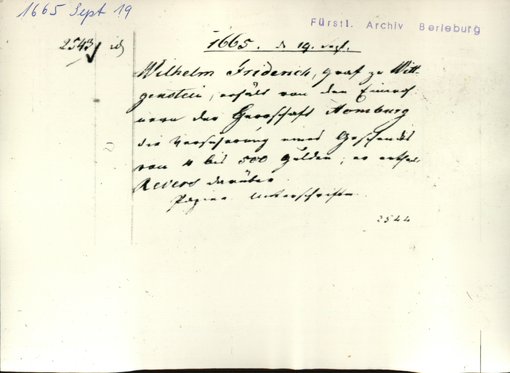 1665 Sept 19
Fürstl. Archiv Berleburg
2543
1665. d. 19. Sept.
Wilhelm Friderich, Graf zu Witt-
genstein, erhält von den Einwoh-
nern der Herrschaft Homburg
die Versicherung eines Geschenkes
von 4 bis 500 Gulden; er erthei
Revers darüber.
Papier Unterschriften
2544